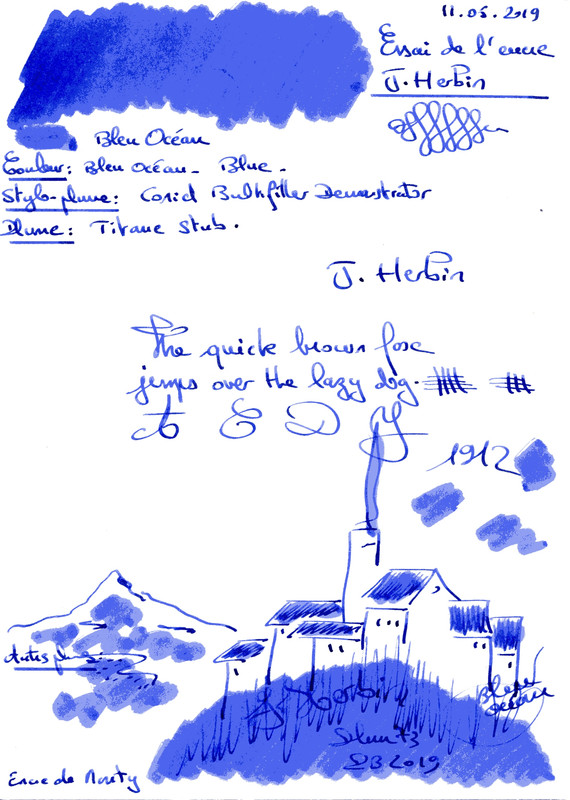 11.05.2019
Essai de l'encre
J. Herbin
Bleu Océan
Couleur: Bleu Océan - Blue -
Stylo-plume: Conid Bulkfiller Demonstrator
Plume: Titane Stub.
J. Herbin
The quick brown foxe
jumps over the lazy dog.
A E D Y
1912
J. Herbin
Bleu
océan
2019
Encre de Monty